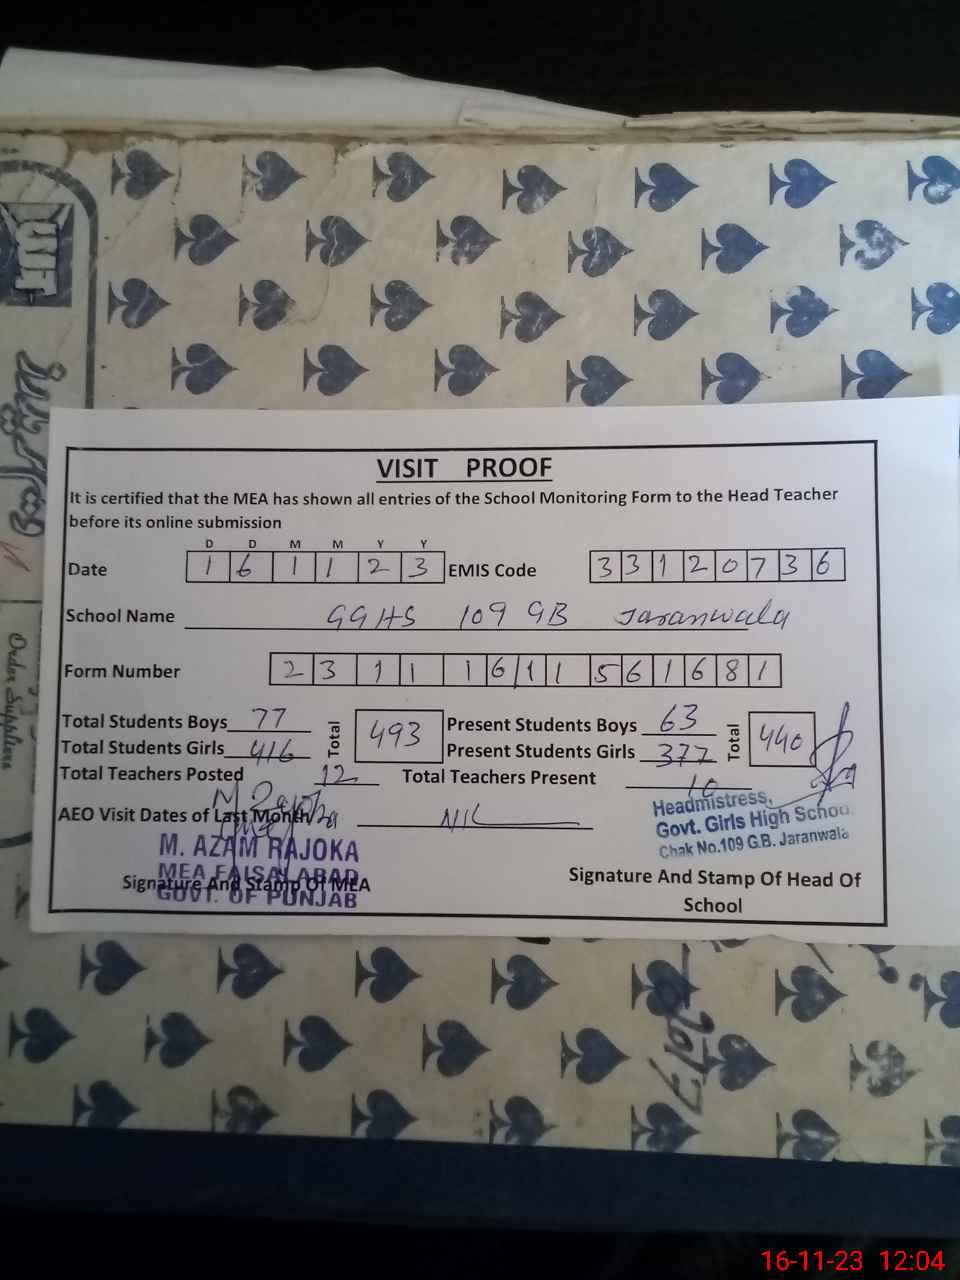 VISIT PROOF
It is certified that the MEA has shown all entries of the School Monitoring Form to the Head Teacher
before its online submission
D D M M Y Y
Date 1 6 1 1 2 3 EMIS Code 3 3 1 2 0 7 3 6
School Name GGHS 109 GB Jaranwala
Form Number 2 3 1 1 1 6 1 1 5 6 1 6 8 1
Total Students Boys 77 Total 493 Present Students Boys 63 Total 440
Total Students Girls 416 Present Students Girls 377
Total Teachers Posted 12 Total Teachers Present 10
AEO Visit Dates of Last Month Nil
Headmistress,
Govt. Girls High School
Chak No.109 G.B. Jaranwala
M. AZAM RAJOKA
MEA FAISALABAD
GOVT. OF PUNJAB
Signature And Stamp Of MEA
Signature And Stamp Of Head Of
School
Order Suppliers
16-11-23 12:04